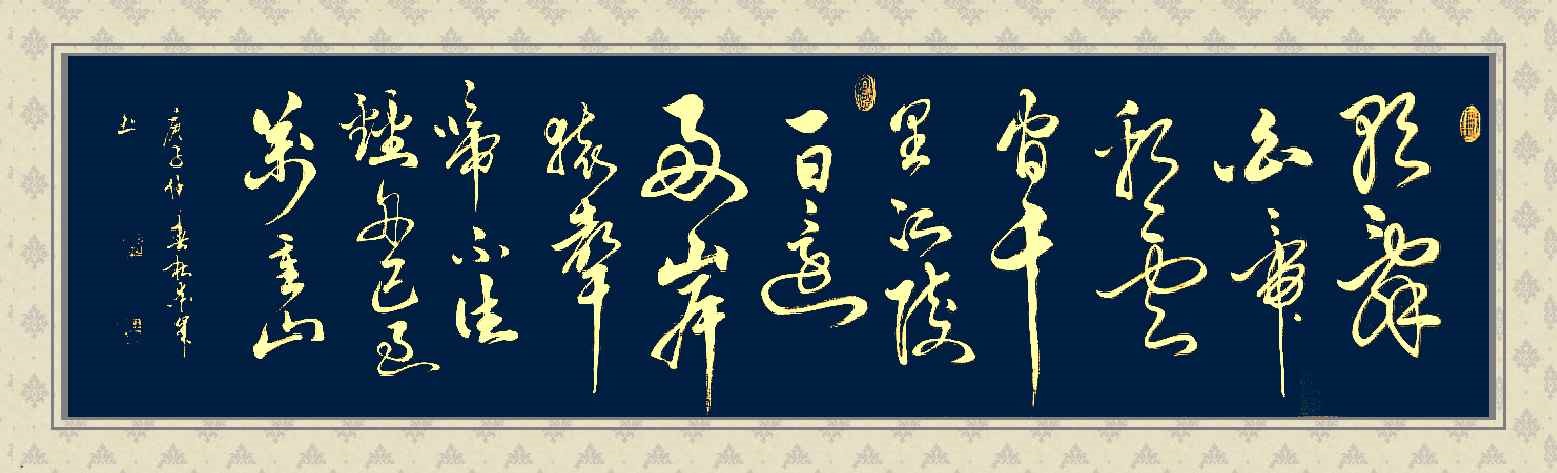 朝辭
白帝
彩云
間千
里江陵
一日還
兩岸
猿聲
啼不住
輕舟已過
萬重山
庚子仲春杜